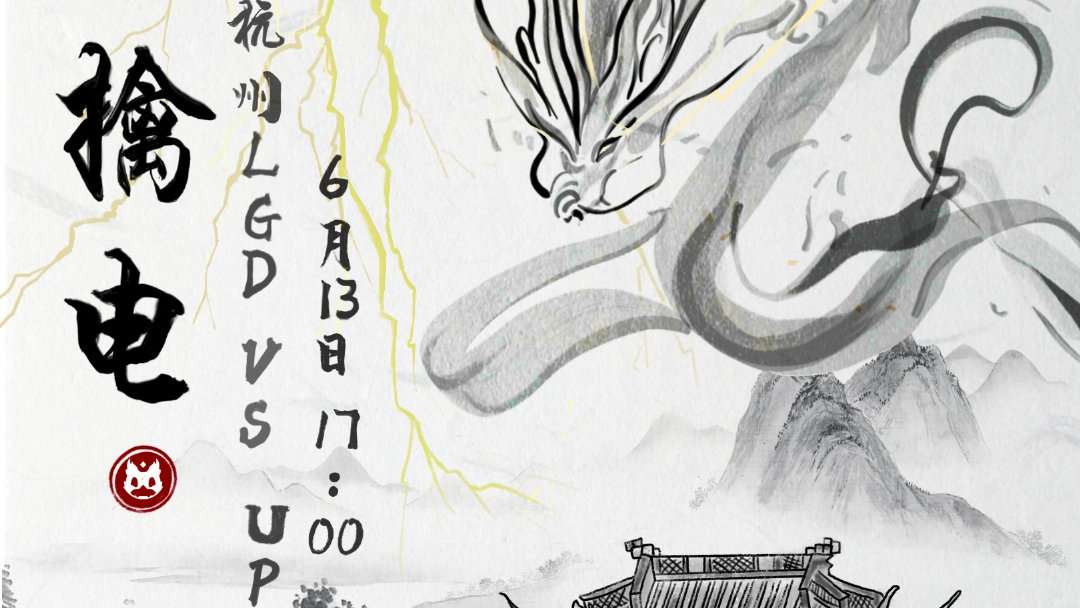 擒电
杭州LGD VS UP
6月13日 17:00